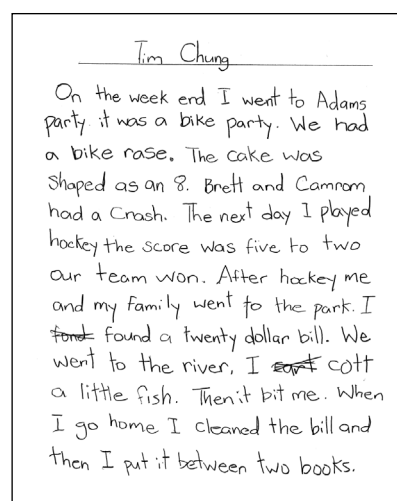 Tim Chung
On the week end I went to Adams
party it was a bike party. We had
a bike rase. The cake was
Shaped as an 8. Brett and Camrom
had a Crash. The next day I played
hockey the score was five to two
our team won. After hockey me
and my family went to the park. I
fond found a twenty dollar bill. We
went to the river, I cott
a little fish. Then it bit me. When
I go home I cleaned the bill and
then I put it between two books.